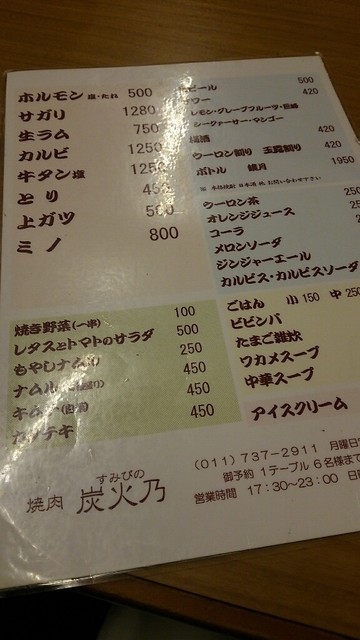 ホルモン 塩・たれ 500
サガリ 1280
生ラム 750
カルビ 1250
牛タン塩 1250
とり
上ガツ 500
ミノ 800
ビール 500
サワー 420
レモン・グレープフルーツ・巨峰
シークァーサー・マンゴー
420
ウーロン割り 玉露割り 420
ボトル 1950
ウーロン茶
オレンジジュース
コーラ
メロンソーダ
ジンジャーエール
カルピス・カルピスソーダ
焼き野菜(一串) 100
レタスとトマトのサラダ 500
もやしナムル 250
ナムル 450
キムチ 450
450
ごはん 小150 中
ビビンバ
たまご雑炊
ワカメスープ
中華スープ
アイスクリーム
焼肉 炭火乃
すみびの
(011) 737-2911 月曜日
御予約 1テーブル 6名様まで
営業時間 17:30〜23:00